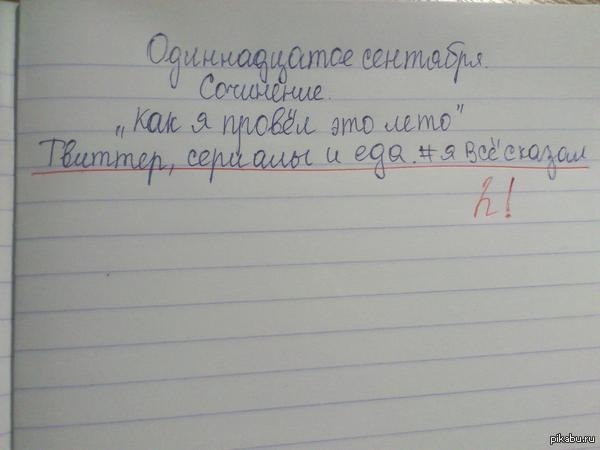 Одиннадцатое сентября.
Сочинение.
„Как я провёл это лето"
Твиттер, сериалы и еда. #я всё сказал
2!
pikabu.ru